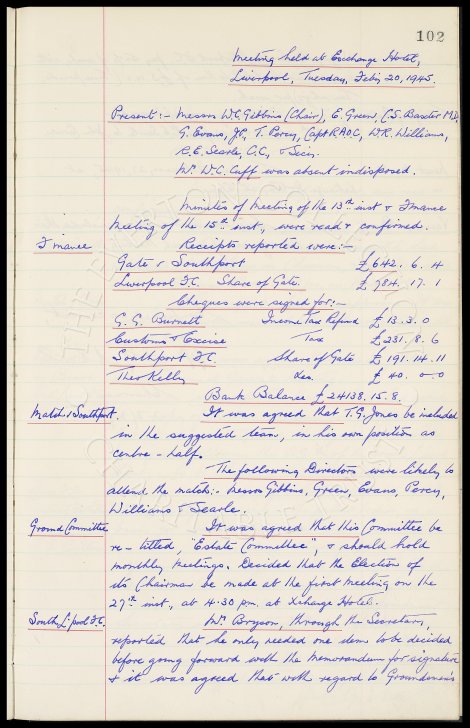 102
Meeting held at Exchange Hotel,
Liverpool, Tuesday, Feby 20, 1945.
Present:- Messrs W.C. Gibbins (Chair), E. Green, C.S. Baxter M.B.
G. Evans, J.P., T. Percy, Capt RAOC, W.R. Williams,
R.E. Searle, C.C., & Secy.
Mr. W.C. Cuff was absent indisposed.
Minutes of Meeting of the 13th inst & Finance
Meeting of the 15th inst, were read & confirmed.
Finance Receipts reported were:-
Gate v Southport £642. 6. 4
Liverpool F.C. Share of Gate. £784. 17. 1
Cheques were signed for:-
G.G. Burnett Income Tax Refund £13. 3. 0
Customs & Excise Tax £231. 8. 6
Southport F.C Share of Gate £191. 14. 11
Theo Kelly £40. 0-0
Bank Balance £24138. 15. 8.
Match v Southport. It was agreed that T.G. Jones be included
in the suggested team, in his own position as
centre-half.
The following Directors were likely to
attend the match:- Messrs Gibbins, Green, Evans, Percy,
Williams & Searle.
Ground Committee It was agreed that this Committee be
re-titled, "Estate Committee", & should hold
monthly meetings. Decided that the Election of
its Chairman be made at the first meeting on the
27th inst, at 4.30 pm. at Xchange Hotel.
South L'pool F.C. Mr. Bryson, through the Secretary,
reported that he only needed one item to be decided
before going forward with the Memorandum for signature
& it was agreed that with regard to Groundsmen's